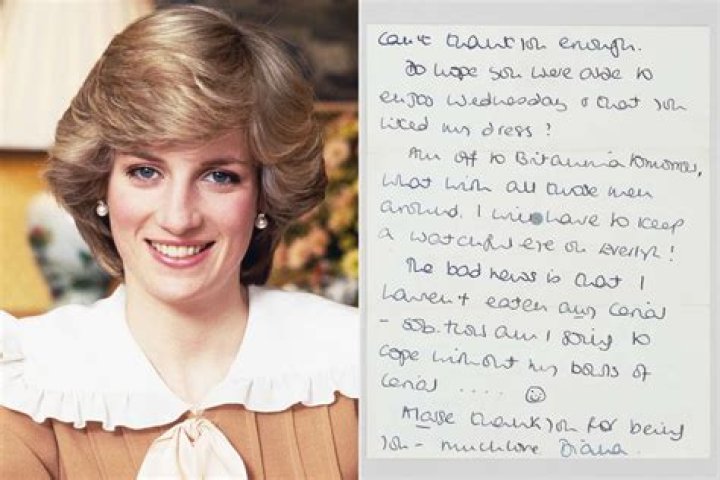 can't thank you enough.
Do hope you were able to
enjoy Wednesday & that you
liked my dress!
Am off to Britannia tomorrow,
what with all those men
around. I will have to keep
a watchful eye on Evelyn!
The bad news is that I
haven't eaten any cereal
- sob. How am I going to
cope without my bowls of
cereal ....
thank you for being
you - much love Diana.